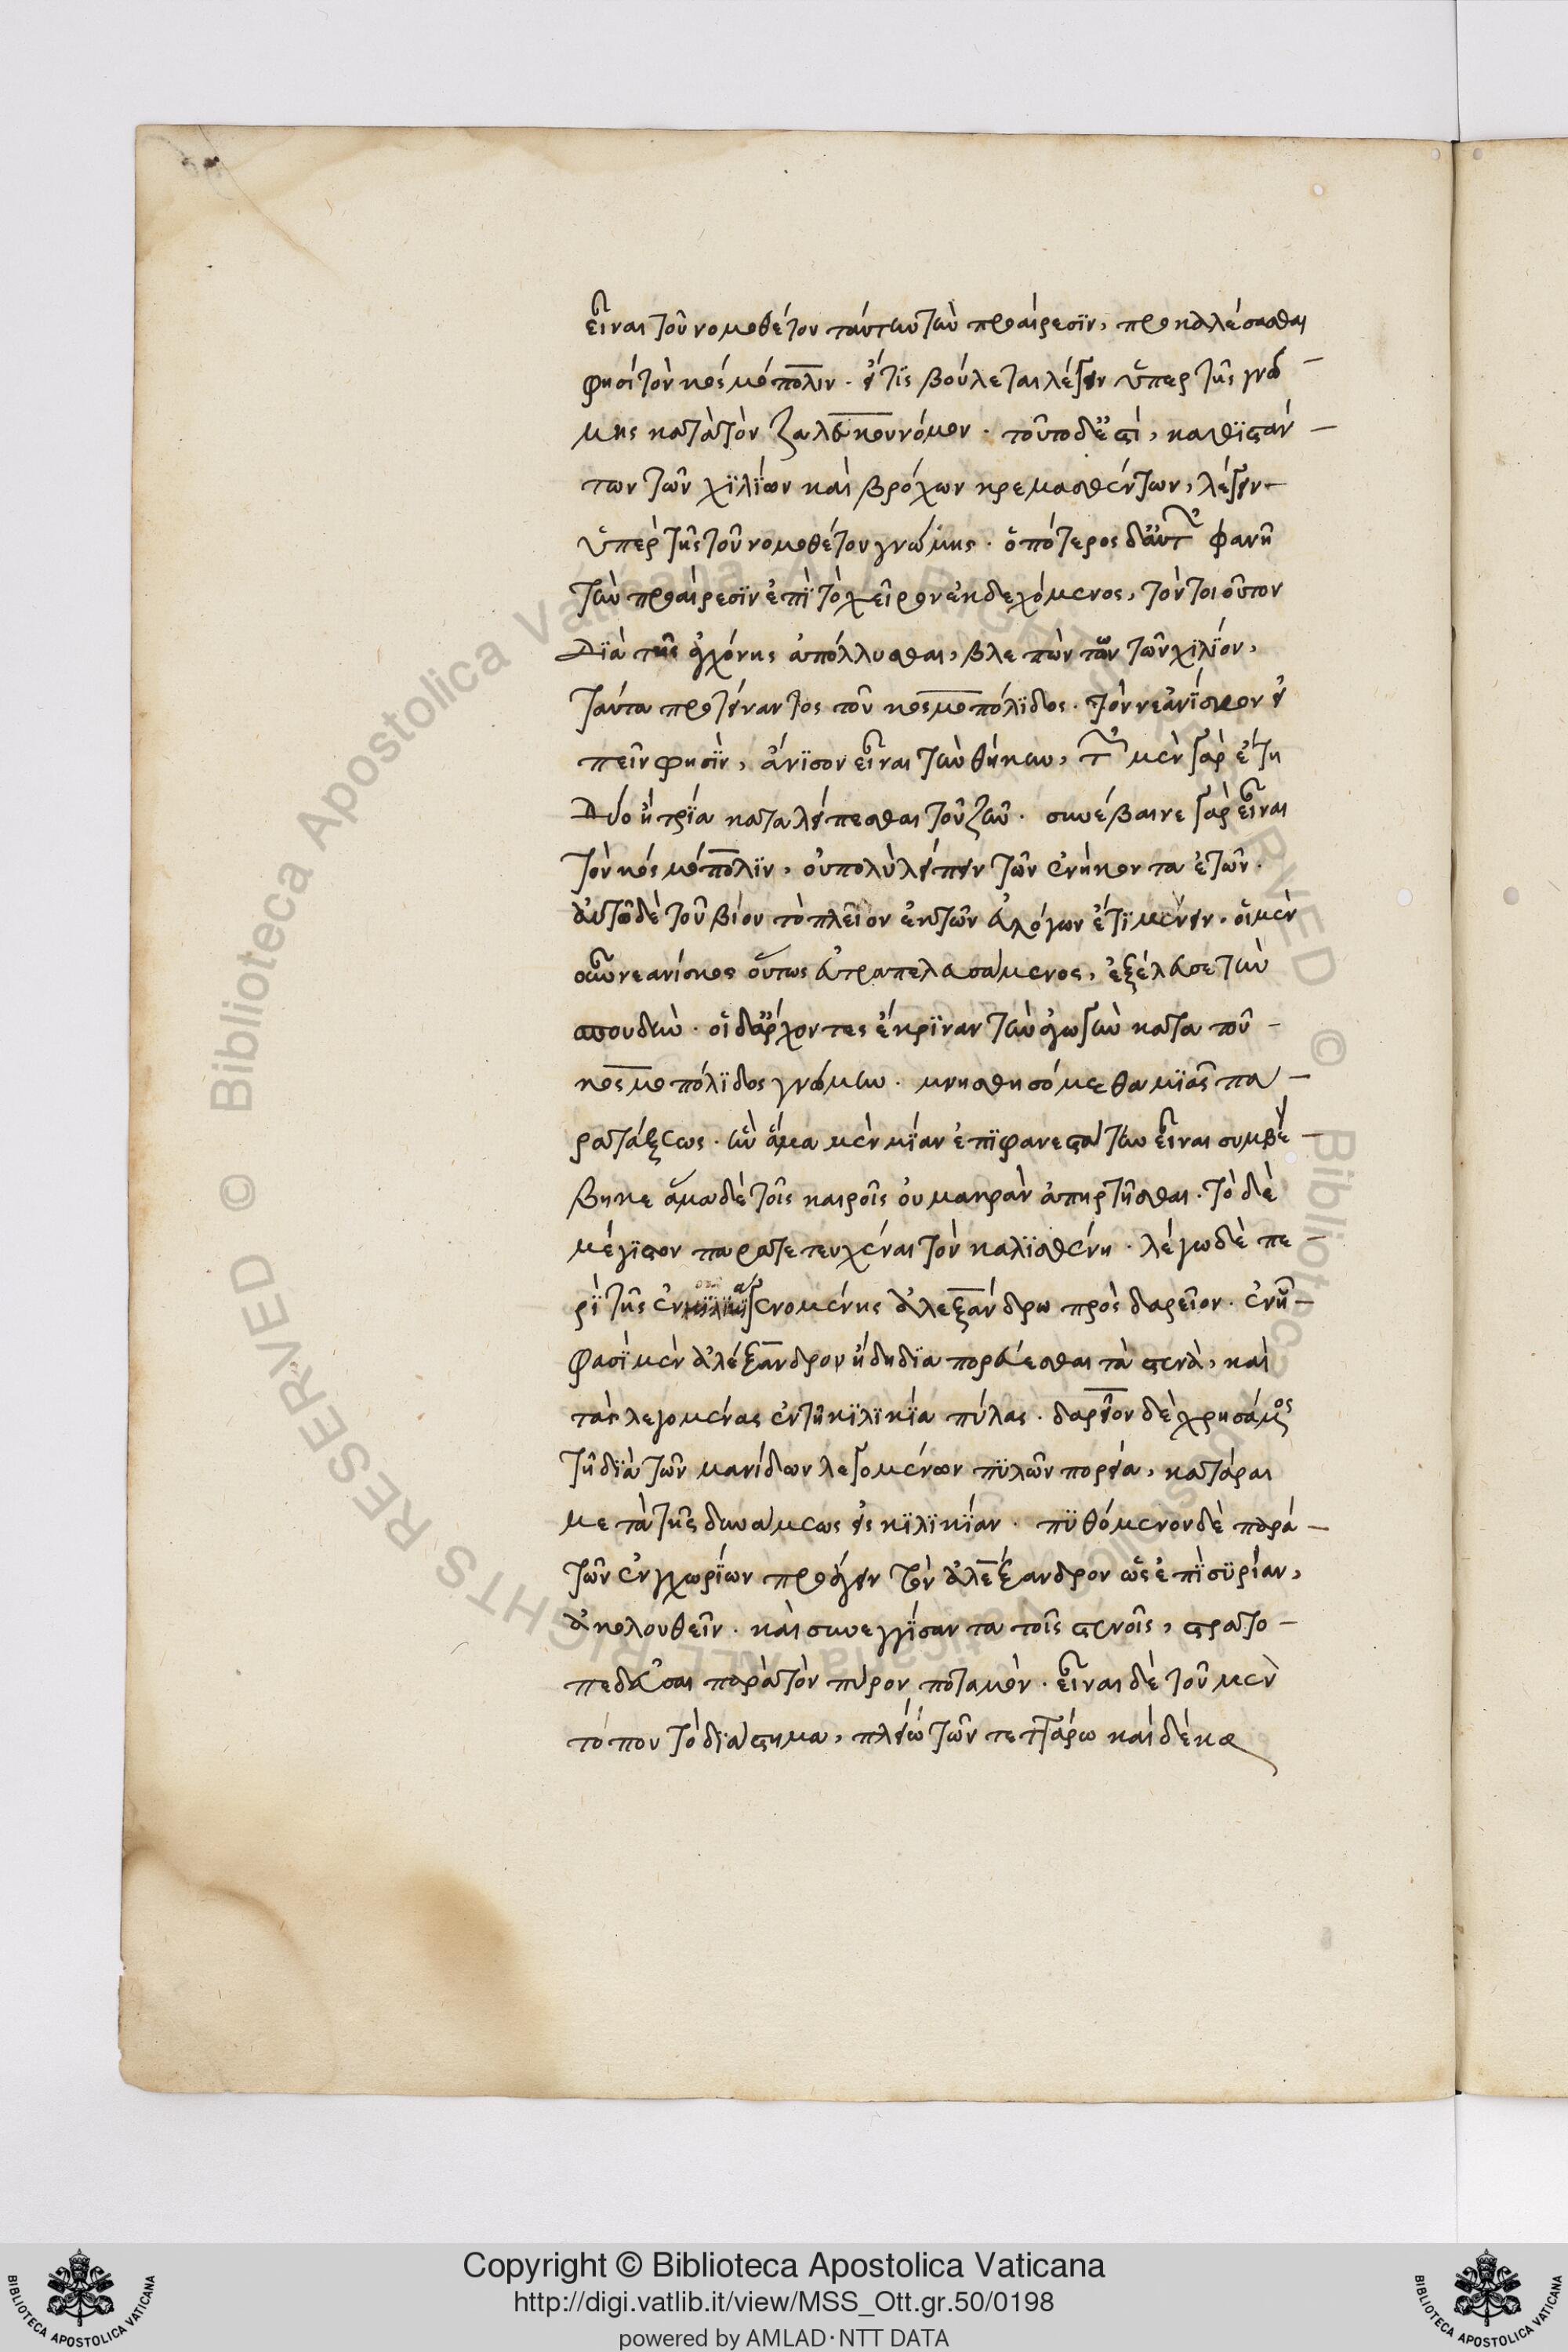 εἶναι τοῦ νομοθέτου ταύτην τὴν προαίρεσϊν, προκαλέσασθαι
φησὶ τὸν κοσμόπολιν. εἴ τϊς βούλεται λέγειν ὑπὲρ τῆς γνώ
μης κατὰ τὸν ζαλεύκου νόμον. τοῦτο δ' ἐστὶ, καθϊσάν
των τῶν χϊλϊων καὶ βρόχων κρεμασθέντων, λέγειν
ὑπὲρ τῆς τοῦ νομοθέτου γνώμης. ὁπότερος δ' ἂν αὐτῶν φανῆ
τὴν προαίρεσϊν ἐπϊ τὸ χεῖρον ἐκδεχόμενος, τὸν τοιοῦτον
Δϊὰ τῆς ἀγχόνης ἀπόλλυσθαι, βλεπὼν τῶν χϊλϊον,
ταύτα προτείναντος τοῦ κοσμοπόλϊδος. τὸν νεανΐσκον εἰ
πεῖν φησϊν, ἄνϊσον εἶναι τὴν θήκην, τῶ μὲν γὰρ ἔτη
Δύο ἢ τρϊα καταλείπεσθαι τοῦ ζῆν. συνέβαινε γὰρ εἶναι
τὸν κόσμόπολϊν, οὐ πολὺ λείπειν τῶν ἐνήκοντα ἐτῶν.
αὐτῶ δὲ τοῦ βίου τὸ πλεῖον ἐκ τῶν εὐλόγων ἔτϊ μένειν. ὁ μὲν
οὖν νεανίσκος οὕτως εὐτραπελευσάμενος, ἐξέλυσε τὴν
σπουδὴν. οἱ δ' ἄρχοντες ἔκρϊναν τὴν ἀγωγὴν κατα τοῦ
κοσμοπόλϊδος γνώμην. μνησθησόμεθα μϊᾶς πα
ρατάξεως. ἣν ἅμα μὲν μίαν ἐπϊφανεστάτην εἶναι συμβέ
βηκε ἅμα δὲ τοῖς καιροῖς οὐ μακρὰν ἀπηρτῆσθαι. τὸ δὲ
μέγϊστον παρατετευχέναι τὸν καλϊσθένη. λέγω δὲ πε
ρϊ τῆς ἐν κϊλϊκϊα γενομένης ἀλεξάνδρω πρὸς δαρεῖον. ἐν ᾗ
φασϊ μὲν ἀλέξανδρον ἤδη δϊα πορεύεσθαι τὰ στενὰ, καὶ
τὰς λεγομένας ἐν τῆ κϊλϊκϊα πύλας. δαρεῖον δὲ χρησάμενος
τῆ δϊὰ τῶν μανίδων λεγομένων πϋλῶν πορεία, κατάραι
μετὰ τῆς δυνάμεως εἰς κϊλϊκϊαν. πϋθόμενον δὲ παρά
τῶν ἐγχωρϊων προάγειν τὸν ἀλέξανδρον ὡς ἐπϊ σϋρίαν,
ἀκολουθεῖν. καὶ συνεγγϊσαντα τοῖς στενοῖς, στρατο
πεδεῦσαι παρὰ τὸν πύρον ποταμὸν. εἶναι δὲ τοῦ μὲν
τόπου τὸ δϊάστημα, πλείω τῶν τεττάρω καὶ δέκα